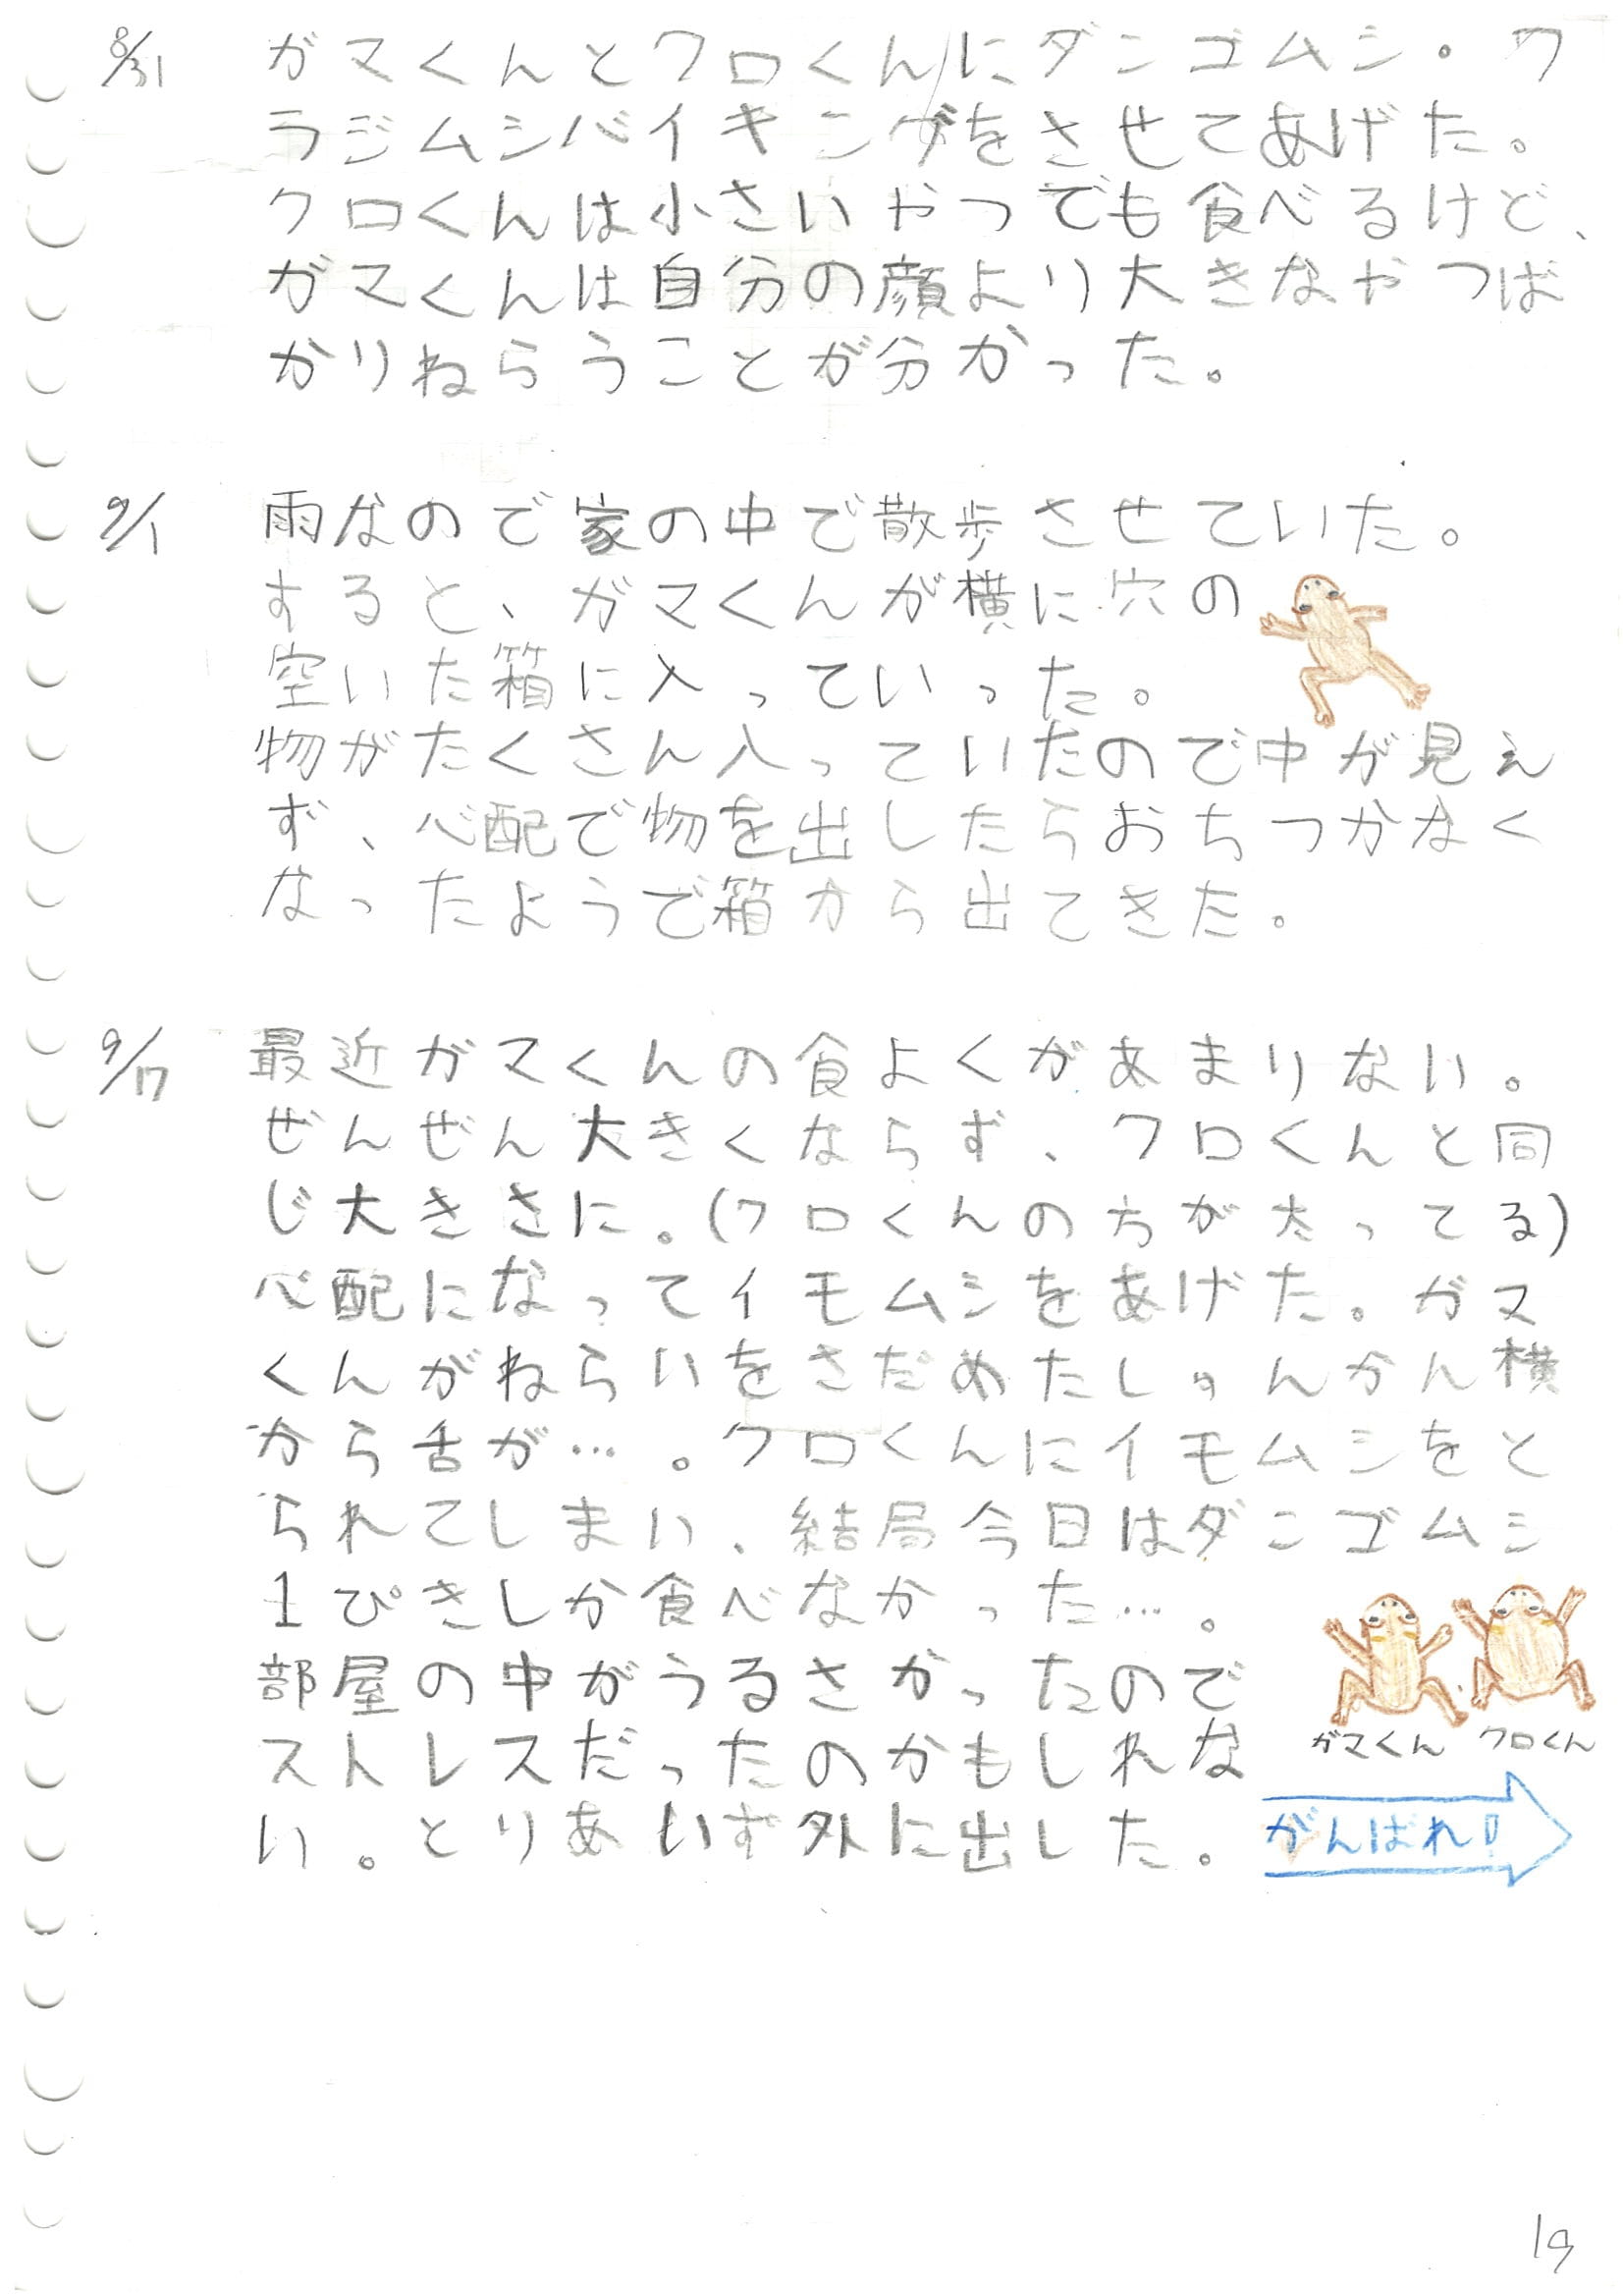 8/31 ガマくんとクロくんにダンゴムシ・ワ
ラジムシバイキングをさせてあげた。
クロくんは小さいやつでも食べるけど、
ガマくんは自分の顔より大きなやつば
かりねらうことが分かった。
9/1 雨なので家の中で散歩させていた。
すると、ガマくんが横に穴の
空いた箱に入っていった。
物がたくさん入っていたので中が見え
ず、心配で物を出したらおちつかなく
なったようで箱から出てきた。
9/17 最近ガマくんの食よくがあまりない。
ぜんぜん大きくならず、クロくんと同
じ大きさに。(クロくんの方が太ってる)
心配になってイモムシをあげた。ガマ
くんがねらいをさだめたしゅんかん横
から舌が…。クロくんにイモムシをと
られてしまい、結局今日はダンゴムシ
1ぴきしか食べなかった…。
部屋の中がうるさかったので
ストレスだったのかもしれな
い。とりあいず外に出した。
ガマくん クロくん
がんばれ!
19